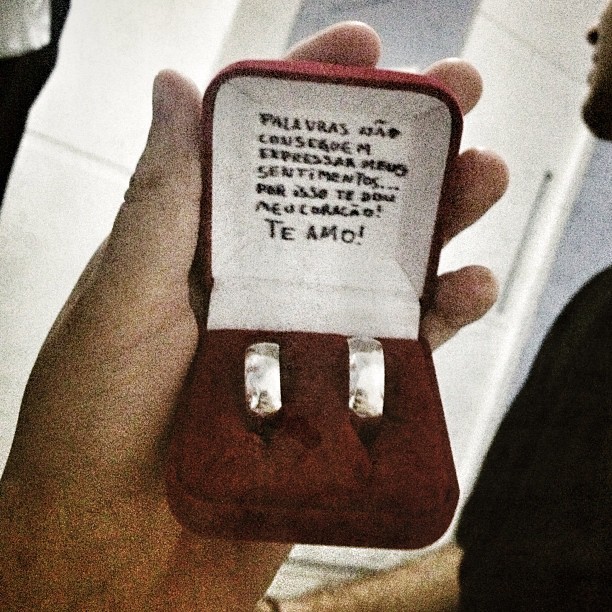 PALAVRAS NÃO
CONSEGUEM
EXPRESSAR MEUS
SENTIMENTOS...
POR ISSO TE DOU
MEU CORAÇÃO!
TE AMO!